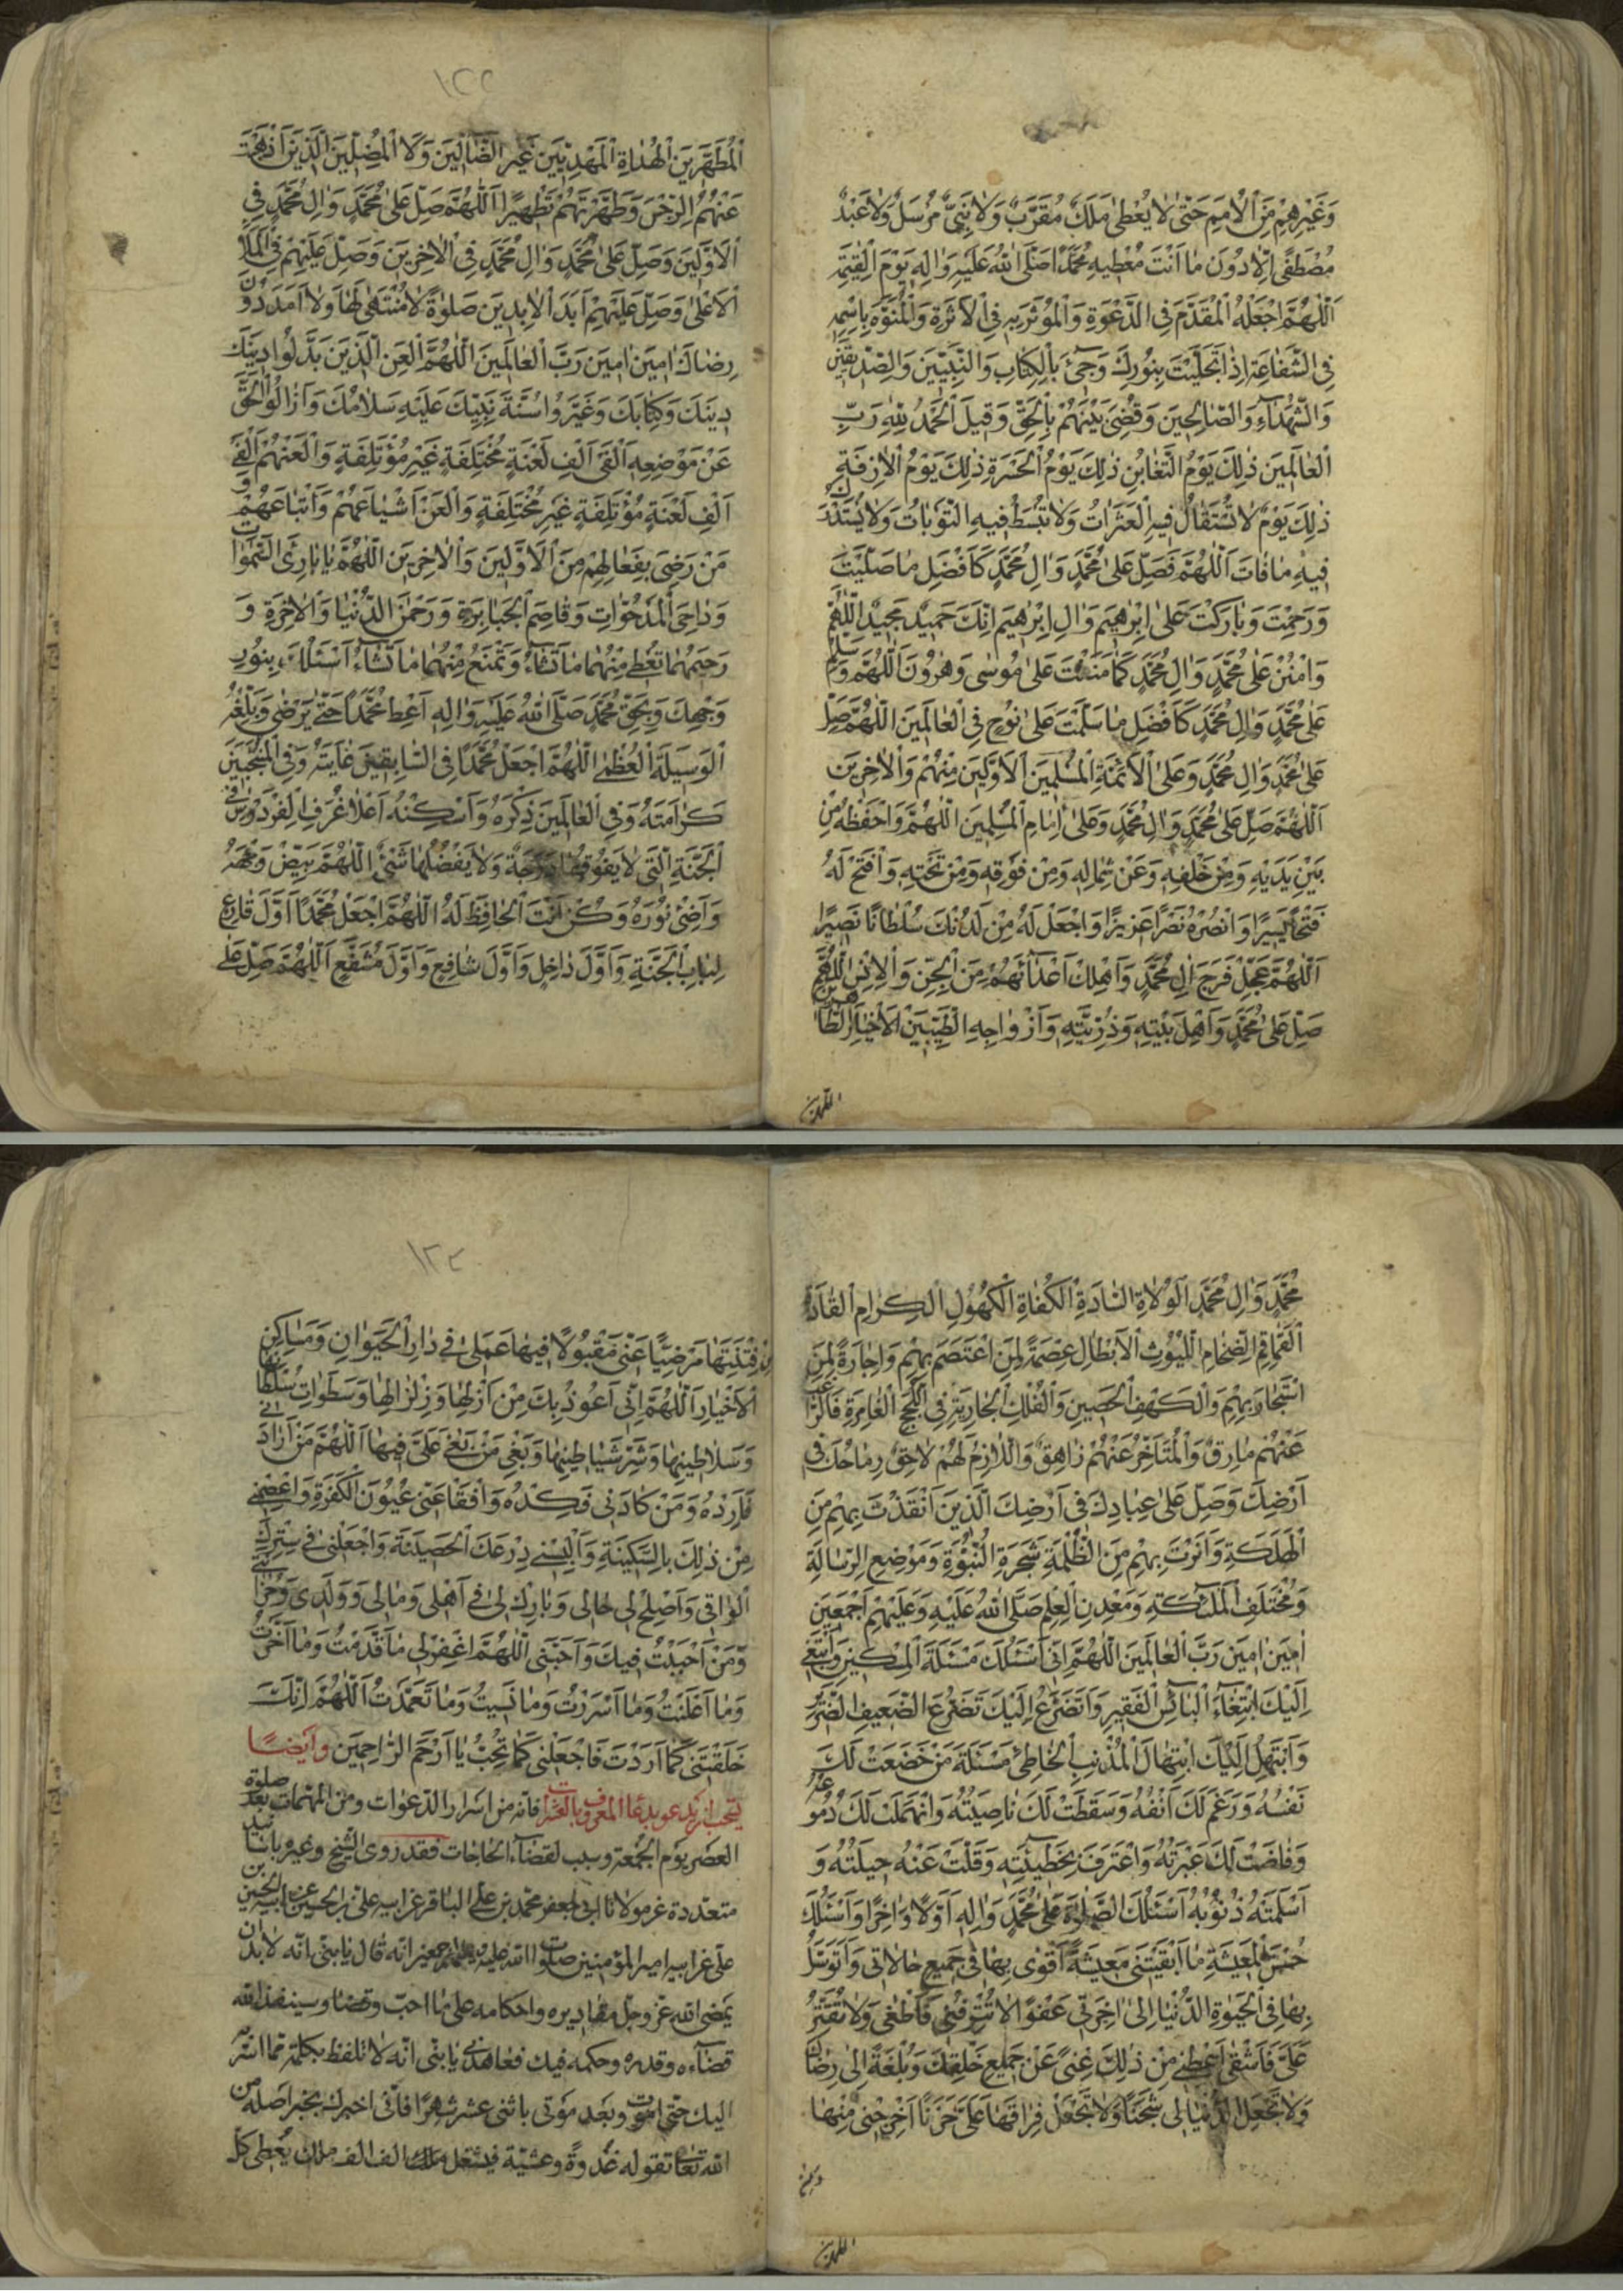 وَغَيْرِهِمْ مِنَ الْأُمَمِ حَتّىٰ لَا يُعْطىٰ مَلَكٌ مُقَرَّبٌ وَلَا نَبِيٌّ مُرْسَلٌ وَلَا عَبْدٌ
مُصْطَفًى اِلَّا دُونَ مَا اَنْتَ مُعْطِيهِ مُحَمَّدًا صَلَّى اللهُ عَلَيْهِ وَاٰلِهِ يَوْمَ الْقِيٰمَةِ
اَللّٰهُمَّ اجْعَلْهُ الْمُقَدَّمَ فِي الدَّعْوَةِ وَالْمُؤْثَرَ بِهِ فِي الْأَثَرَةِ وَالْمُنَوَّهَ بِاسْمِهِ
فِي الشَّفَاعَةِ اِذَا تَجَلَّيْتَ بِنُورِكَ وَجِيءَ بِالْكِتَابِ وَالنَّبِيِّينَ وَالصِّدِّيقِينَ
وَالشُّهَدَاءِ وَالصَّالِحِينَ وَقُضِيَ بَيْنَهُمْ بِالْحَقِّ وَقِيلَ الْحَمْدُ لِلّٰهِ رَبِّ
الْعَالَمِينَ ذٰلِكَ يَوْمُ التَّغَابُنِ ذٰلِكَ يَوْمُ الْحَسْرَةِ ذٰلِكَ يَوْمُ الْاٰزِفَةِ
ذٰلِكَ يَوْمٌ لَا تُسْتَقَالُ فِيهِ الْعَثَرَاتُ وَلَا تُبْسَطُ فِيهِ التَّوْبَاتُ وَلَا يُسْتَدْرَكُ
فِيهِ مَا فَاتَ اَللّٰهُمَّ فَصَلِّ عَلىٰ مُحَمَّدٍ وَاٰلِ مُحَمَّدٍ كَاَفْضَلِ مَا صَلَّيْتَ
وَرَحِمْتَ وَبَارَكْتَ عَلىٰ اِبْرٰهِيمَ وَاٰلِ اِبْرٰهِيمَ اِنَّكَ حَمِيدٌ مَجِيدٌ اَللّٰهُمَّ
وَامْنُنْ عَلىٰ مُحَمَّدٍ وَاٰلِ مُحَمَّدٍ كَمَا مَنَنْتَ عَلىٰ مُوسىٰ وَهٰرُونَ اَللّٰهُمَّ وَسَلِّمْ
عَلىٰ مُحَمَّدٍ وَاٰلِ مُحَمَّدٍ كَاَفْضَلِ مَا سَلَّمْتَ عَلىٰ نُوحٍ فِي الْعَالَمِينَ اَللّٰهُمَّ صَلِّ
عَلىٰ مُحَمَّدٍ وَاٰلِ مُحَمَّدٍ وَعَلىٰ اَئِمَّةِ الْمُسْلِمِينَ الْاَوَّلِينَ مِنْهُمْ وَالْاٰخِرِينَ
اَللّٰهُمَّ صَلِّ عَلىٰ مُحَمَّدٍ وَاٰلِ مُحَمَّدٍ وَعَلىٰ اِمَامِ الْمُسْلِمِينَ اَللّٰهُمَّ وَاحْفَظْهُ مِنْ
بَيْنِ يَدَيْهِ وَمِنْ خَلْفِهِ وَعَنْ شِمَالِهِ وَمِنْ فَوْقِهِ وَمِنْ تَحْتِهِ وَافْتَحْ لَهُ
فَتْحًا يَسِيرًا وَانْصُرْهُ نَصْرًا عَزِيزًا وَاجْعَلْ لَهُ مِنْ لَدُنْكَ سُلْطَانًا نَصِيرًا
اَللّٰهُمَّ عَجِّلْ فَرَجَ اٰلِ مُحَمَّدٍ وَاَهْلِكْ اَعْدَاءَهُمْ مِنَ الْجِنِّ وَالْاِنْسِ اَللّٰهُمَّ
صَلِّ عَلىٰ مُحَمَّدٍ وَاَهْلِ بَيْتِهِ وَذُرِّيَّتِهِ وَاَزْوَاجِهِ الطَّيِّبِينَ الْاَخْيَارِ الطَّاهِرِينَ
المطهرين
١٢٢
الْمُطَهَّرِينَ الْهُدَاةِ الْمَهْدِيِّينَ غَيْرِ الضَّالِّينَ وَلَا الْمُضِلِّينَ الَّذِينَ اَذْهَبْتَ
عَنْهُمُ الرِّجْسَ وَطَهَّرْتَهُمْ تَطْهِيرًا اَللّٰهُمَّ صَلِّ عَلىٰ مُحَمَّدٍ وَاٰلِ مُحَمَّدٍ فِي
الْاَوَّلِينَ وَصَلِّ عَلىٰ مُحَمَّدٍ وَاٰلِ مُحَمَّدٍ فِي الْاٰخِرِينَ وَصَلِّ عَلَيْهِمْ فِي الْمَلَأِ
الْاَعْلىٰ وَصَلِّ عَلَيْهِمْ اَبَدَ الْاٰبِدِينَ صَلوٰةً لَا مُنْتَهىٰ لَهَا وَلَا اَمَدَ دُونَ
رِضَاكَ اٰمِينَ اٰمِينَ رَبَّ الْعَالَمِينَ اَللّٰهُمَّ الْعَنِ الَّذِينَ بَدَّلُوا دِينَكَ
دِينَكَ وَكِتَابَكَ وَغَيَّرُوا سُنَّةَ نَبِيِّكَ عَلَيْهِ سَلَامُكَ وَاَزَالُوا الْحَقَّ
عَنْ مَوْضِعِهِ اَلْفَيْ اَلْفِ لَعْنَةٍ مُخْتَلِفَةٍ غَيْرِ مُؤْتَلِفَةٍ وَالْعَنْهُمْ اَلْفَيْ
اَلْفِ لَعْنَةٍ مُؤْتَلِفَةٍ غَيْرِ مُخْتَلِفَةٍ وَالْعَنْ اَشْيَاعَهُمْ وَاَتْبَاعَهُمْ وَ
مَنْ رَضِيَ بِفِعَالِهِمْ مِنَ الْاَوَّلِينَ وَالْاٰخِرِينَ اَللّٰهُمَّ يَا بَارِئَ السَّمٰوَاتِ
وَدَاحِيَ الْمَدْحُوَّاتِ وَقَاصِمَ الْجَبَابِرَةِ وَرَحْمٰنَ الدُّنْيَا وَالْاٰخِرَةِ وَ
رَحِيمَهُمَا تُعْطِي مِنْهُمَا مَا تَشَاءُ وَتَمْنَعُ مِنْهُمَا مَا تَشَاءُ اَسْئَلُكَ بِنُورِ
وَجْهِكَ وَبِحَقِّ مُحَمَّدٍ صَلَّى اللهُ عَلَيْهِ وَاٰلِهِ اَعْطِ مُحَمَّدًا حَتّىٰ يَرْضىٰ وَبَلِّغْهُ
الْوَسِيلَةَ الْعُظْمىٰ اَللّٰهُمَّ اجْعَلْ مُحَمَّدًا فِي السَّابِقِينَ غَايَتَهُ وَفِي الْمُنْتَجَبِينَ
كَرَامَتَهُ وَفِي الْعَالَمِينَ ذِكْرَهُ وَاَسْكِنْهُ اَعْلَا غُرَفِ الْفِرْدَوْسِ فِي
الْجَنَّةِ الَّتِي لَا يَفُوقُهَا دَرَجَةٌ وَلَا يَفْضُلُهَا شَيْءٌ اَللّٰهُمَّ بَيِّضْ وَجْهَهُ
وَاَضِئْ نُورَهُ وَكُنْ اَنْتَ الْحَافِظَ لَهُ اَللّٰهُمَّ اجْعَلْ مُحَمَّدًا اَوَّلَ قَارِعٍ
لِبَابِ الْجَنَّةِ وَاَوَّلَ دَاخِلٍ وَاَوَّلَ شَافِعٍ وَاَوَّلَ مُشَفَّعٍ اَللّٰهُمَّ صَلِّ عَلىٰ
مُحَمَّدٍ وَاٰلِ مُحَمَّدٍ الْوُلَاةِ السَّادَةِ الْكُفَاةِ الْكُهُولِ الْكِرَامِ الْقَادَةِ
الْقَمَاقِمِ الضِّخَامِ اللُّيُوثِ الْاَبْطَالِ عِصْمَةً لِمَنِ اعْتَصَمَ بِهِمْ وَاِجَارَةً لِمَنِ
اسْتَجَارَ بِهِمْ وَالْكَهْفِ الْحَصِينِ وَالْفُلْكِ الْجَارِيَةِ فِي اللُّجَجِ الْغَامِرَةِ فَالرَّاغِبُ
عَنْهُمْ مَارِقٌ وَالْمُتَأَخِّرُ عَنْهُمْ زَاهِقٌ وَاللَّازِمُ لَهُمْ لَاحِقٌ رِمَاحُكَ فِي
اَرْضِكَ وَصَلِّ عَلىٰ عِبَادِكَ فِي اَرْضِكَ الَّذِينَ اَنْقَذْتَ بِهِمْ مِنَ
الْهَلَكَةِ وَاَنَرْتَ بِهِمْ مِنَ الظُّلْمَةِ شَجَرَةِ النُّبُوَّةِ وَمَوْضِعِ الرِّسَالَةِ
وَمُخْتَلَفِ الْمَلٰئِكَةِ وَمَعْدِنِ الْعِلْمِ صَلَّى اللهُ عَلَيْهِ وَعَلَيْهِمْ اَجْمَعِينَ
اٰمِينَ اٰمِينَ رَبَّ الْعَالَمِينَ اَللّٰهُمَّ اِنِّي اَسْئَلُكَ مَسْئَلَةَ الْمِسْكِينِ وَاَبْتَغِي
اِلَيْكَ ابْتِغَاءَ الْبَائِسِ الْفَقِيرِ وَاَتَضَرَّعُ اِلَيْكَ تَضَرُّعَ الضَّعِيفِ الضَّرِيرِ
وَاَبْتَهِلُ اِلَيْكَ ابْتِهَالَ الْمُذْنِبِ الْخَاطِئِ مَسْئَلَةَ مَنْ خَضَعَتْ لَكَ
نَفْسُهُ وَرَغَمَ لَكَ اَنْفُهُ وَسَقَطَتْ لَكَ نَاصِيَتُهُ وَانْهَمَلَتْ لَكَ دُمُوعُهُ
وَفَاضَتْ لَكَ عَبْرَتُهُ وَاعْتَرَفَ بِخَطِيئَتِهِ وَقَلَّتْ عَنْهُ حِيلَتُهُ وَ
اَسْلَمَتْهُ ذُنُوبُهُ اَسْئَلُكَ الصَّلوٰةَ عَلىٰ مُحَمَّدٍ وَاٰلِهِ اَوَّلًا وَاٰخِرًا وَاَسْئَلُكَ
حُسْنَ الْمَعِيشَةِ مَا اَبْقَيْتَنِي مَعِيشَةً اَقْوىٰ بِهَا فِي جَمِيعِ حَالَاتِي وَاَتَوَسَّلُ
بِهَا فِي الْحَيٰوةِ الدُّنْيَا اِلىٰ اٰخِرَتِي عَفْوًا لَا تُتْرِفْنِي فَاَطْغىٰ وَلَا تُقَتِّرْ
عَلَيَّ فَاَشْقىٰ اَعْطِنِي مِنْ ذٰلِكَ غِنًى عَنْ جَمِيعِ خَلْقِكَ وَبُلْغَةً اِلىٰ رِضَاكَ
وَلَا تَجْعَلِ الدُّنْيَا لِي سِجْنًا وَلَا تَجْعَلْ فِرَاقَهَا عَلَيَّ حَزَنًا اَخْرِجْنِي مِنْهَا
المطهرين
١٢٣
مِنْ فِتْنَتِهَا مَرْضِيًّا عَنِّي مَقْبُولًا فِيهَا عَمَلِي اِلىٰ دَارِ الْحَيَوَانِ وَمَسَاكِنِ
الْاَخْيَارِ اَللّٰهُمَّ اِنِّي اَعُوذُ بِكَ مِنْ اَزْلِهَا وَزِلْزَالِهَا وَسَطَوَاتِ سُلْطَانِهَا
وَسَلَاطِينِهَا وَشَرِّ شَيَاطِينِهَا وَبَغْيِ مَنْ بَغىٰ عَلَيَّ فِيهَا اَللّٰهُمَّ مَنْ اَرَادَنِي
فَاَرِدْهُ وَمَنْ كَادَنِي فَكِدْهُ وَافْقَأْ عَنِّي عُيُونَ الْكَفَرَةِ وَاعْصِمْنِي
مِنْ ذٰلِكَ بِالسَّكِينَةِ وَاَلْبِسْنِي دِرْعَكَ الْحَصِينَةَ وَاجْعَلْنِي فِي سِتْرِكَ
الْوَاقِي وَاَصْلِحْ لِي حَالِي وَبَارِكْ لِي فِي اَهْلِي وَمَالِي وَوَلَدِي وَحُزَانَتِي
وَمَنْ اَحْبَبْتُ فِيكَ وَاَحَبَّنِي اَللّٰهُمَّ اغْفِرْ لِي مَا قَدَّمْتُ وَمَا اَخَّرْتُ
وَمَا اَعْلَنْتُ وَمَا اَسْرَرْتُ وَمَا نَسِيتُ وَمَا تَعَمَّدْتُ اَللّٰهُمَّ اِنَّكَ
خَلَقْتَنِي كَمَا اَرَدْتَ فَاجْعَلْنِي كَمَا تُحِبُّ يَا اَرْحَمَ الرَّاحِمِينَ وَاَيْضًا
يستحب ان يدعو بدعاء المعروف بالعشرات فانه من اسرار الدعوات ومن المهمات بعد صلوة
العصر يوم الجمعة وسبب لقضاء الحاجات فقد روى الشيخ وغيره باسانيد
متعددة عن مولانا ابي جعفر محمد بن علي الباقر عن ابيه علي بن الحسين عن ابيه الحسين بن
علي عن ابيه امير المؤمنين صلوات الله عليه وعليهم اجمعين انه قال يا بني انه لا بد ان
يمضي الله عز وجل مقاديره واحكامه على ما احب وقضا وسينفذ الله
قضاءه وقدره وحكمه فيك فعاهدني يا بني انه لا تلفظ بكلمة مما اسره
اليك حتى اموت وبعد موتي باثنى عشر شهرا فاني اخبرك بخبر اصله من
الله تعالى تقوله غدوة وعشية فيشغل الف الف ملك يعطى كل